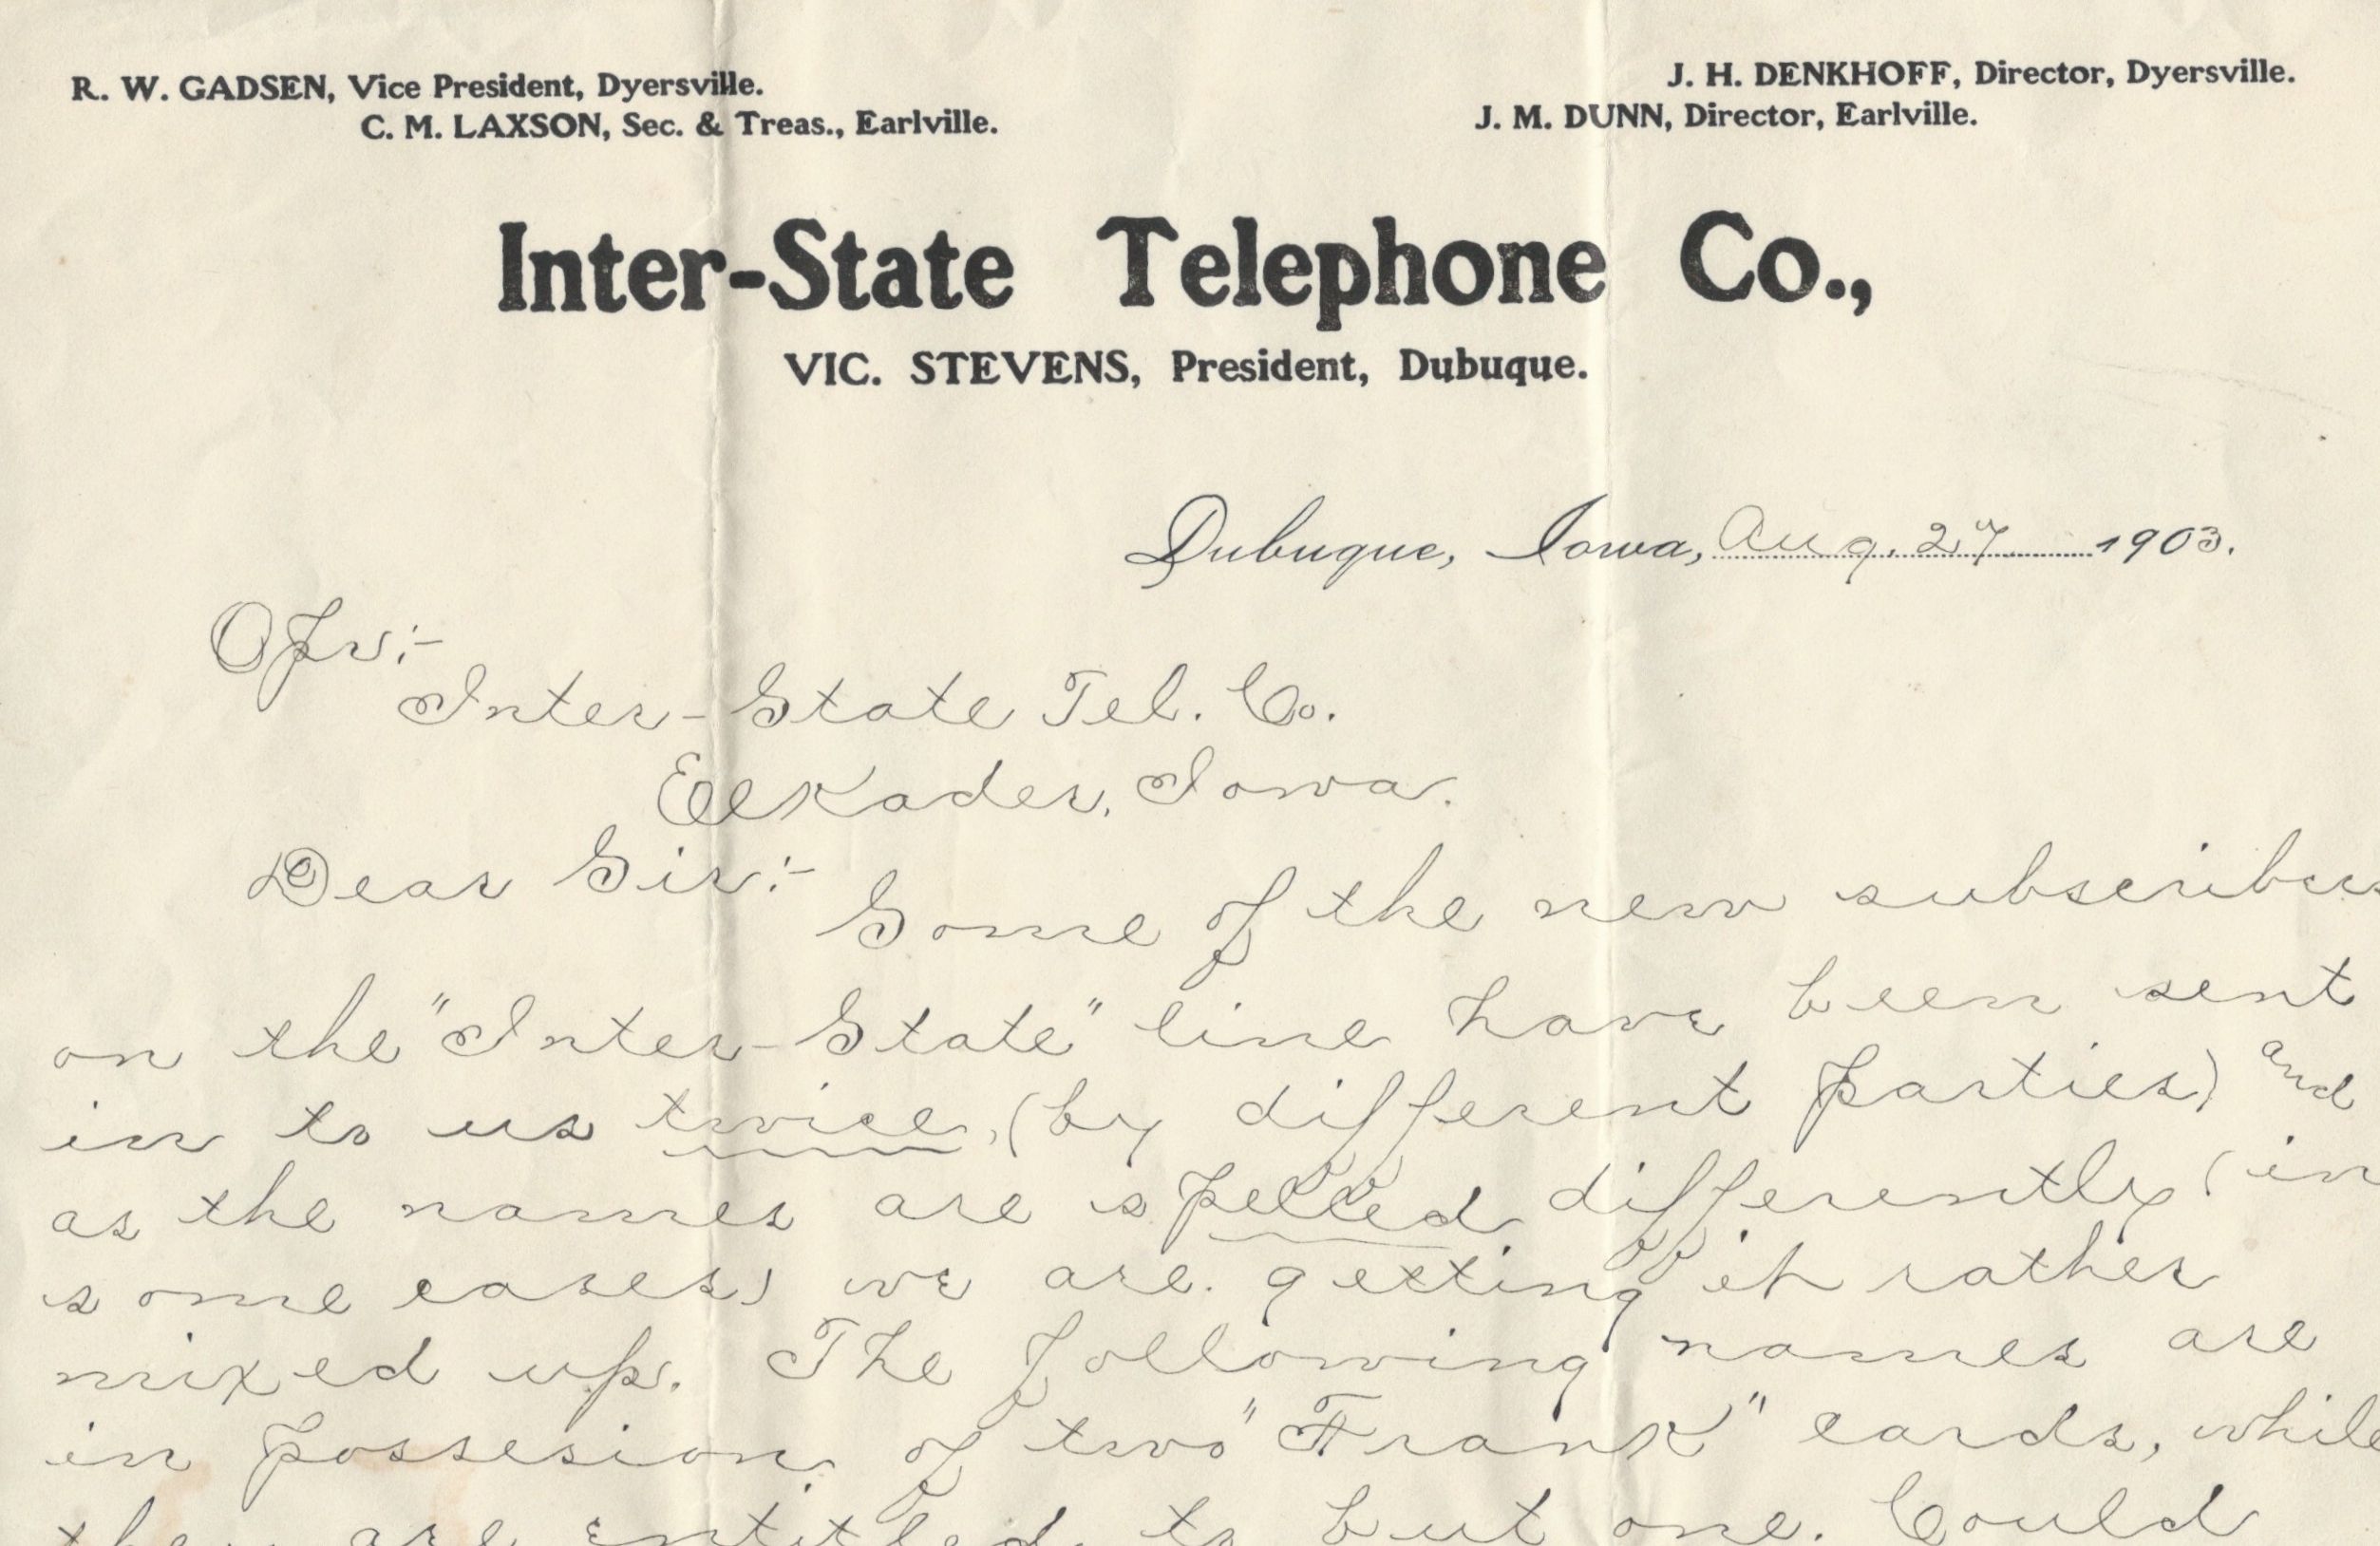 R. W. GADSEN, Vice President, Dyersville.
C. M. LAXSON, Sec. & Treas., Earlville.
J. H. DENKHOFF, Director, Dyersville.
J. M. DUNN, Director, Earlville.
Inter-State Telephone Co.,
VIC. STEVENS, President, Dubuque.
Dubuque, Iowa, Aug. 27 1903.
Opr:-
Inter-State Tel. Co.
Elkader, Iowa.
Dear Sir:-
Some of the new subscribers
on the "Inter-State" line have been sent
in to us twice, (by different parties) and
as the names are spelled differently (in
some cases) we are getting it rather
mixed up. The following names are
in possesion of two "Frank" cards, while
they are entitled to but one. Could